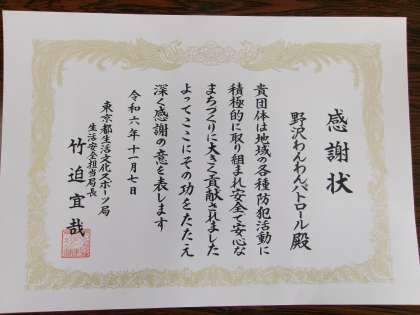 感謝状
野沢わんわんパトロール殿
貴団体は地域の各種防犯活動に
積極的に取り組まれ安全で安心な
まちづくりに大きく貢献されました
よってここにその功をたたえ
深く感謝の意を表します
令和六年十一月七日
東京都生活文化スポーツ局
生活安全担当局長
竹迫宜哉